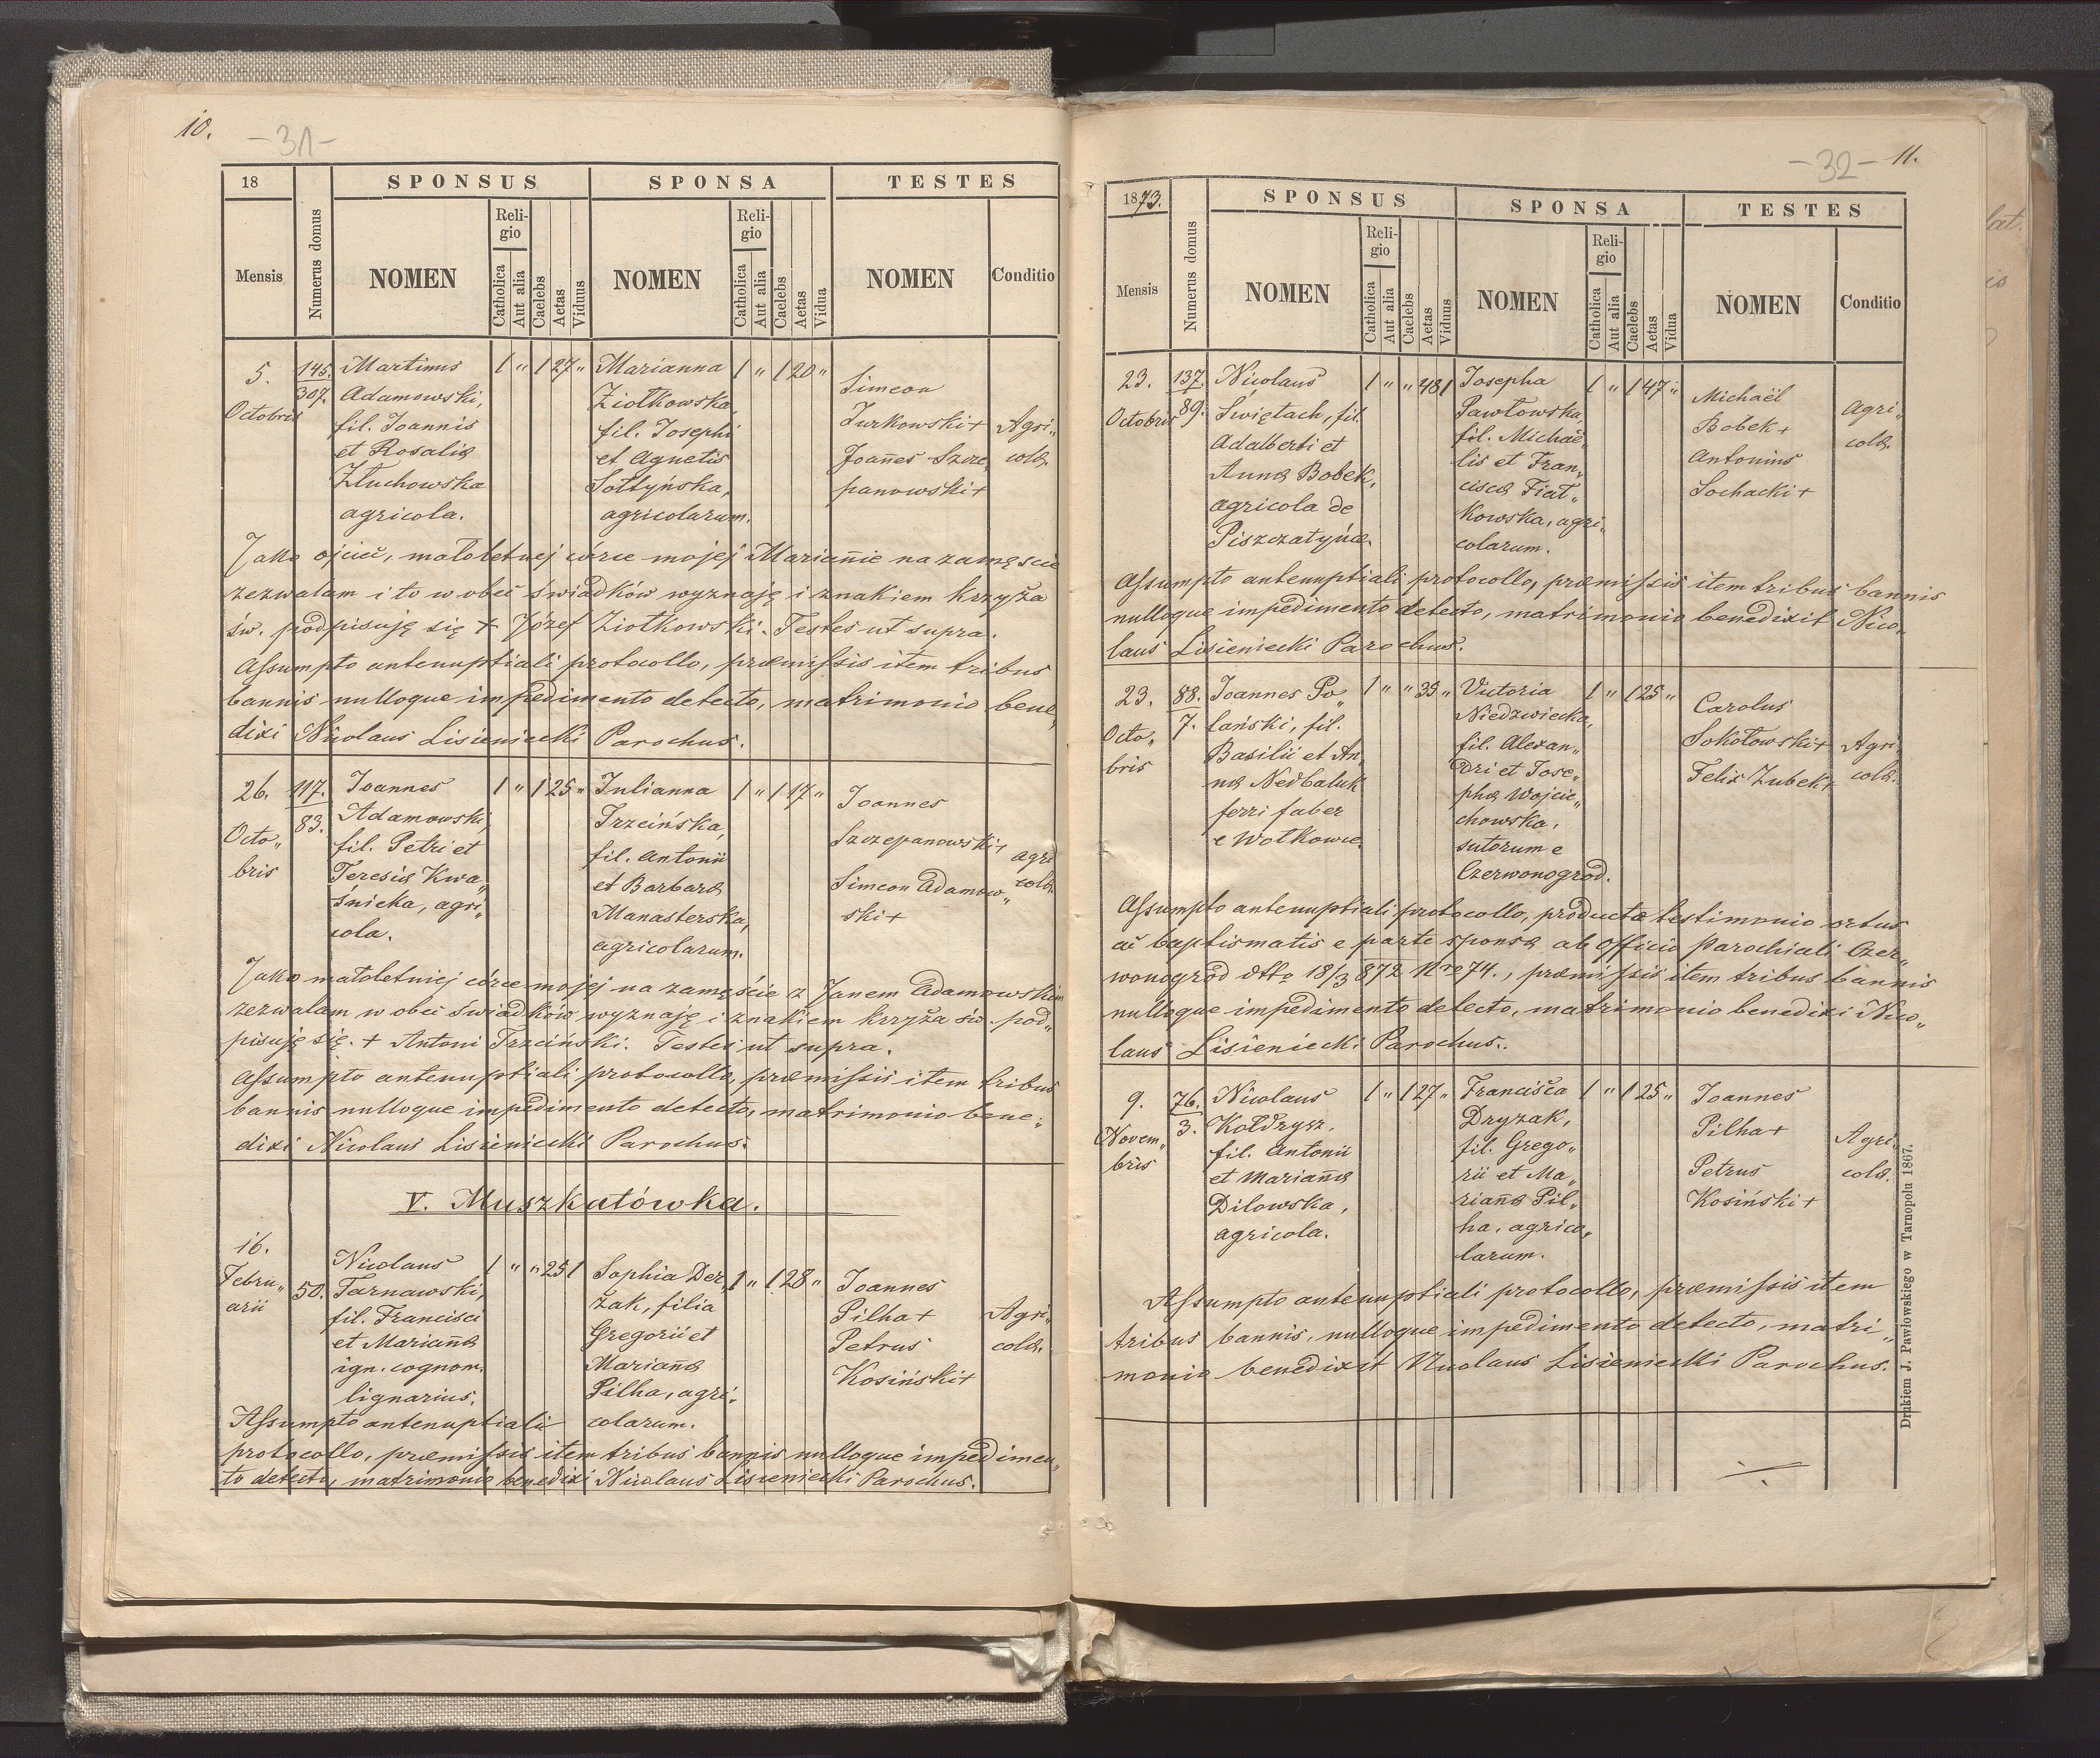 10.
-31-
18
SPONSUS
SPONSA
TESTES
Mensis
Numerus domus
NOMEN
Reli-
gio
Catholica
Aut alia
Caelebs
Aetas
Viduus
NOMEN
Reli-
gio
Catholica
Aut alia
Caelebs
Aetas
Vidua
NOMEN
Conditio
5.
Octobris
145.
307.
Martinus
Adamowski,
fil. Joannis
et Rosalia
Złuchowska
agricola.
1 " 1 27 "
Marianna
Ziołkowska,
fil. Josephi
et Agnetis
Sołtyńska,
agricolarum.
1 " 1 20 "
Simeon
Jurkowski +
Joannes Szcze
panowski +
Agri„
colæ.
Jako ojciec, małoletniej córce mojej Mariannie na zamęście
zezwalam i to w obec świadków wyznaję i znakiem krzyża
św. podpisuję się + Józef Ziołkowski. Testes ut supra.
Assumpto antenuptiali protocollo, præmissis item tribus
bannis nulloque impedimento detecto, matrimonio bene„
dixi Nicolaus Lisieniecki Parochus.
26.
Octo„
bris
117.
83.
Joannes
Adamowski,
fil. Petri et
Teresia Kwa„
śnicka, agri„
cola.
1 " 1 25 "
Julianna
Trzcińska,
fil. Antonii
et Barbara
Manasterska,
agricolarum.
1 " 1 17 "
Joannes
Szczepanowski +
Simeon Adamow„
ski +
agri
colæ.
Jako małoletniej córce mojej na zamęście z Janem Adamowskim
zezwalam w obec świadków wyznaję i znakiem krzyża św. pod„
pisuję się. + Antoni Trzciński. Testes ut supra.
Assumpto antenuptiali protocollo, præmissis item tribus
bannis nulloque impedimento detecto, matrimonio bene„
dixi Nicolaus Lisieniecki Parochus.
V. Muszkatówka.
16.
Febru„
arii
50.
Nicolaus
Tarnawski,
fil. Francisci
et Marianna
ign. cognom.
lignarius.
1 " " 25 1
Sophia Der„
żak, filia
Gregorii et
Marianna
Pilha, agri„
colarum.
1 " 1 28 "
Joannes
Pilha +
Petrus
Kosiński +
Agri„
colæ.
Assumpto antenuptiali
protocollo, præmissis item tribus bannis nulloque impedimen„
to detecto, matrimonio benedixi Nicolaus Lisieniecki Parochus.
-32-
11.
1873.
SPONSUS
SPONSA
TESTES
Mensis
Numerus domus
NOMEN
Reli-
gio
Catholica
Aut alia
Caelebs
Aetas
Viduus
NOMEN
Reli-
gio
Catholica
Aut alia
Caelebs
Aetas
Vidua
NOMEN
Conditio
23.
Octobris
137.
89.
Nicolaus
Świętach, fil.
Adalberti et
Anna Bobek,
agricola de
Piszczatyńce.
1 " " 48 1
Josepha
Pawłowska,
fil. Michaë„
lis et Fran„
cisca Fiał„
kowska, agri„
colarum.
1 " 1 47 "
Michaël
Bobek +
Antonius
Sochacki +
Agri„
colæ.
Assumpto antenuptiali protocollo, præmissis item tribus bannis
nulloque impedimento detecto, matrimonio benedixit Nico„
laus Lisieniecki Parochus.
23.
Octo„
bris
88.
7.
Joannes Po„
lański, fil.
Basilii et An„
na Nedbaluk
ferri faber
e Wołkowce.
1 " " 35 "
Victoria
Niedzwiecka,
fil. Alexan„
dri et Jose„
pha Wojcie„
chowska,
sutorum e
Czerwonogrod.
1 " 1 25 "
Carolus
Sokołowski +
Felix Zubek +
Agri
colæ.
Assumpto antenuptiali protocollo, producto testimonio ortus
ac baptismatis e parte sponsæ ab Officio Parochiali Czer„
wonogrod dtto 18/3 872 Nro 74., præmissis item tribus bannis
nulloque impedimento detecto, matrimonio benedixi Nico„
laus Lisieniecki Parochus.
9.
Novem„
bris
76.
3.
Nicolaus
Kołdrysz,
fil. Antonii
et Marianna
Dilowska,
agricola.
1 " 1 27 "
Francisca
Dryzak,
fil. Grego„
rii et Ma„
rianna Pil„
ha, agrico„
larum.
1 " 1 25 "
Joannes
Pilha +
Petrus
Kosiński +
Agri„
colæ.
Assumpto antenuptiali protocollo, præmissis item
tribus bannis, nulloque impedimento detecto, matri„
monio benedixit Nicolaus Lisieniecki Parochus.
Drukiem J. Pawłowskiego w Tarnopolu 1867.